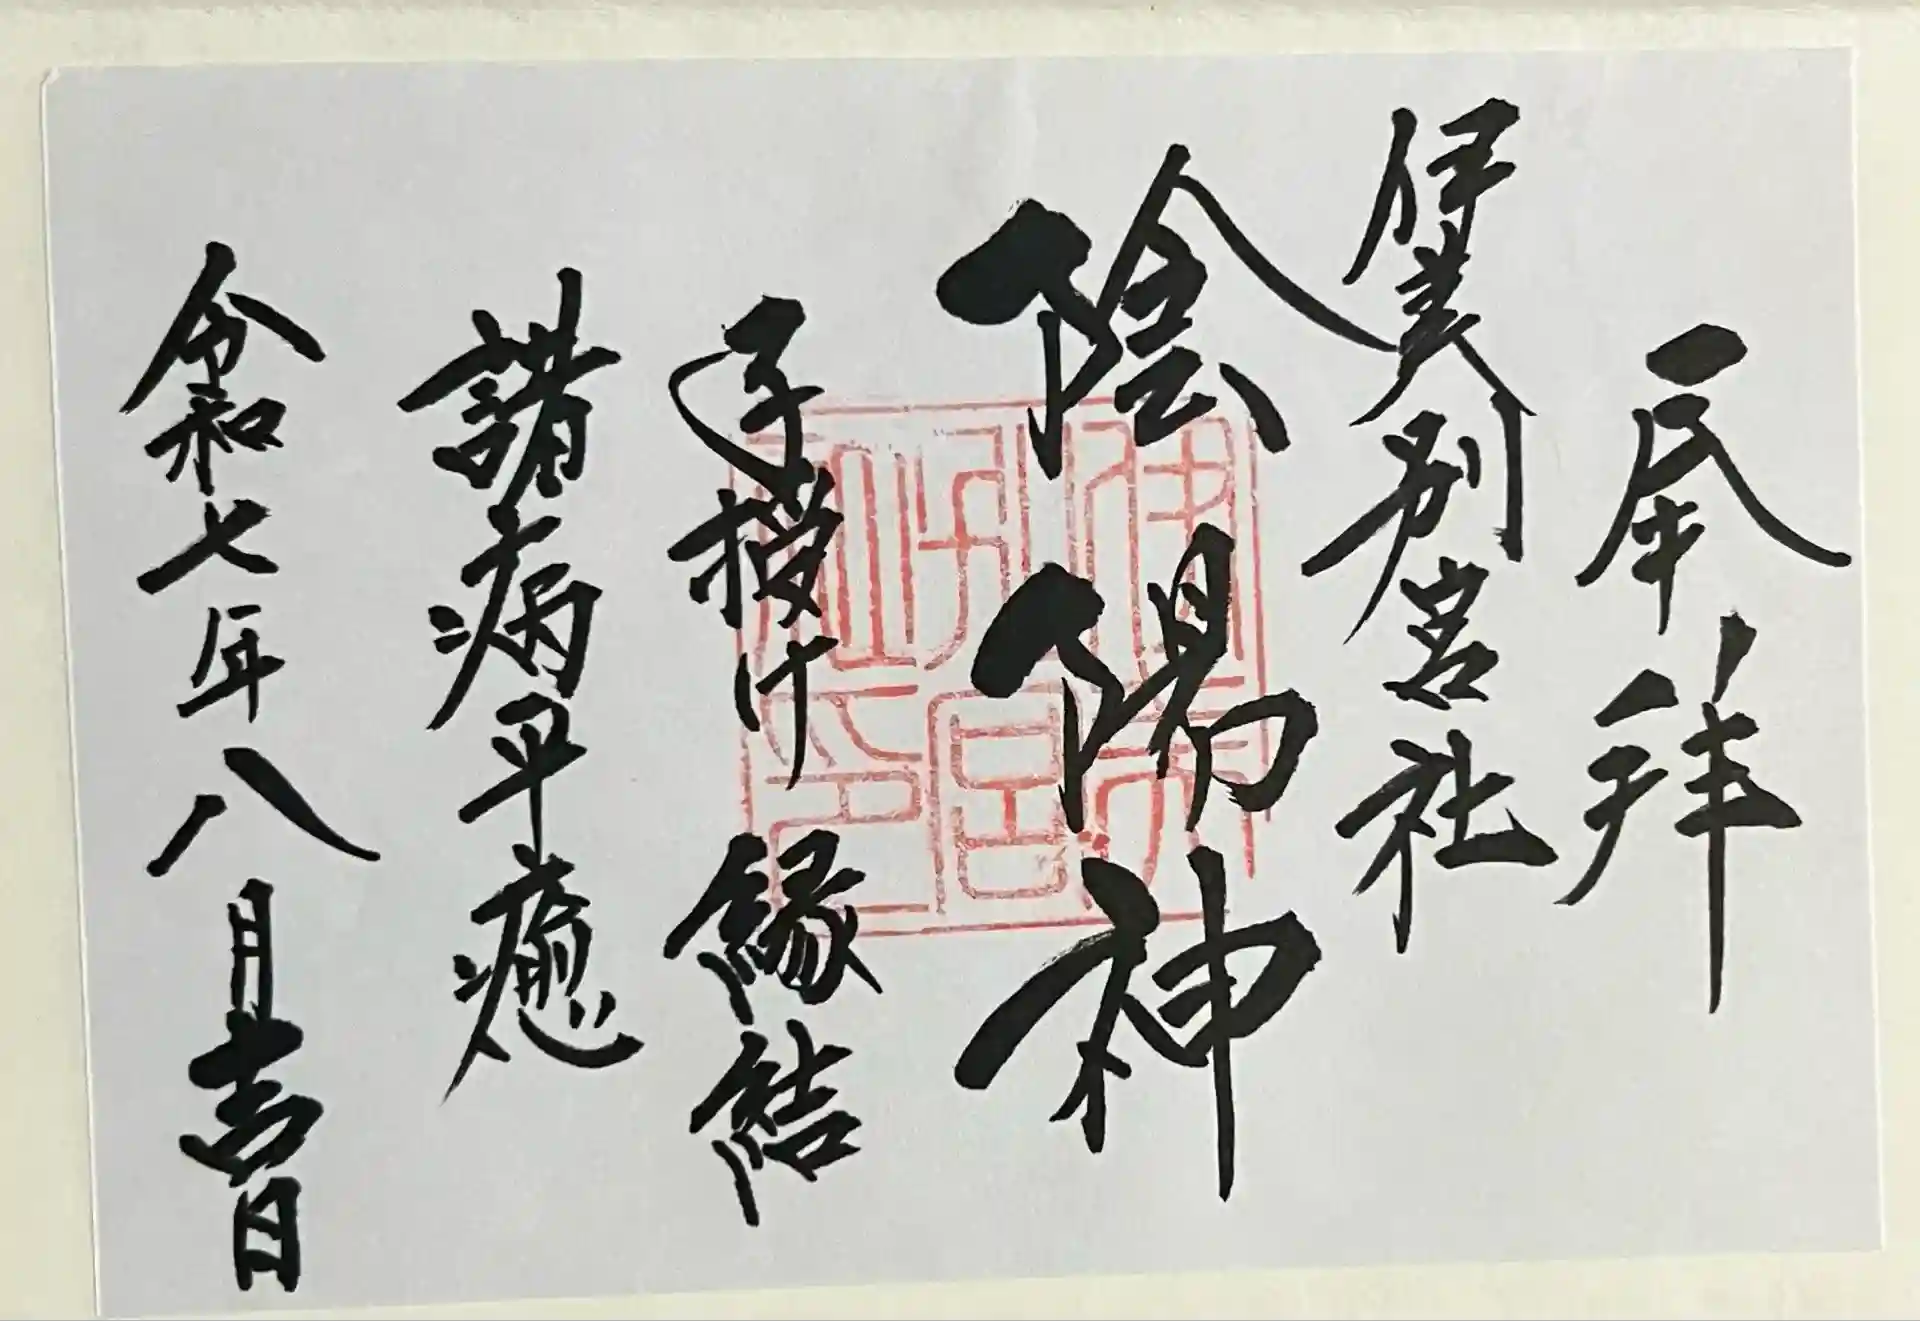 奉拝
伊美別宮社
陰陽神
子授け 縁結
諸病平癒
令和七年八月吉日